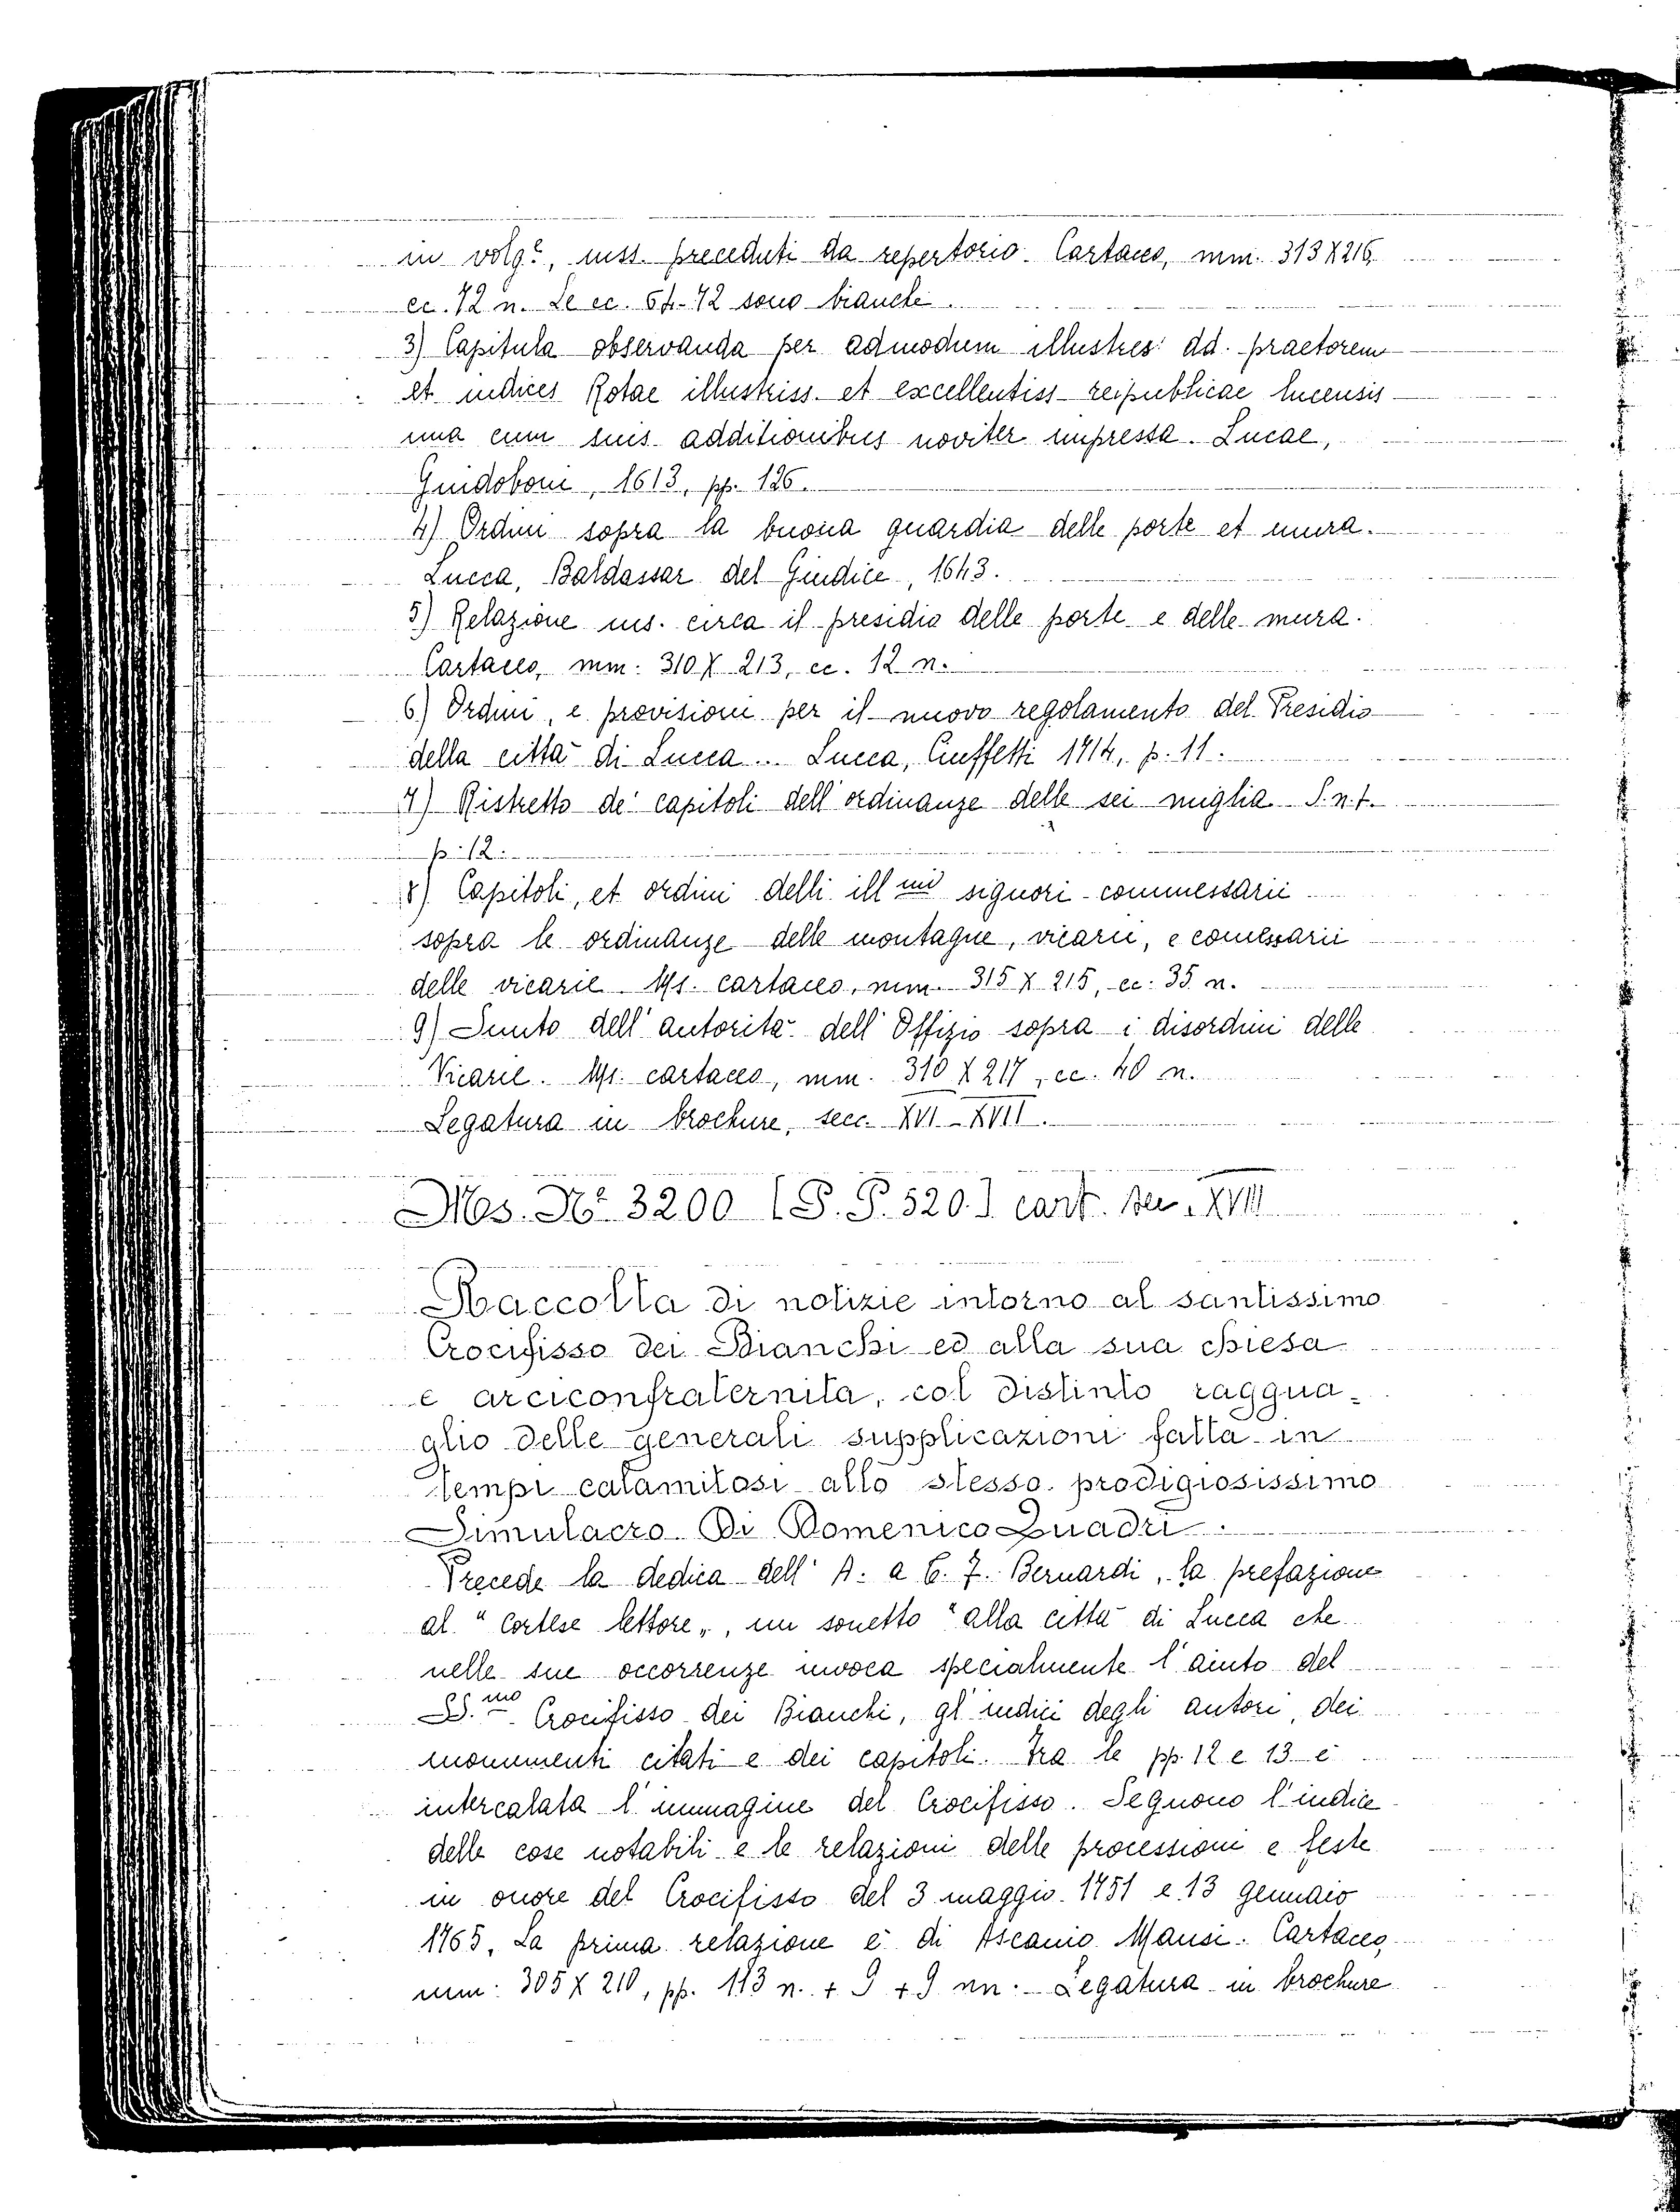 in volg.e, mss. preceduti da repertorio. Cartaceo, mm. 313 X 216,
cc. 72 n. Le cc. 64-72 sono bianche.
3) Capitula observanda per admodum illustres dd. praetorem
et iudices Rotae illustriss. et excellentiss. reipublicae lucensis
una cum suis additionibus noviter impressa. Lucae,
Guidoboni, 1613, pp. 126.
4) Ordini sopra la buona guardia delle porte et mura.
Lucca, Baldassar del Giudice, 1643.
5) Relazione ms. circa il presidio delle porte e delle mura.
Cartaceo, mm. 310 X 213, cc. 12 n.
6) Ordini, e provisioni per il nuovo regolamento del Presidio
della città di Lucca... Lucca, Ciuffetti 1714, p. 11.
7) Ristretto de' capitoli dell'ordinanze delle sei miglia. S.n.t.
p. 12.
8) Capitoli, et ordini delli ill mi signori commessarii
sopra le ordinanze delle montagne, vicarii, e comessarii
delle vicarie. Ms. cartaceo, mm. 315 X 215, cc. 35 n.
9) Sunto dell'autorità dell'Offizio sopra i disordini delle
Vicarie. Ms. cartaceo, mm. 310 X 217, cc. 40 n.
Legatura in brochure, secc. XVI-XVII.
Mos. No. 3200 [S. P. 520.] cart. sec. XVIII
Raccolta di notizie intorno al santissimo
Crocifisso dei Bianchi ed alla sua chiesa
e arciconfraternita, col distinto raggua-
glio delle generali supplicazioni fatta in
tempi calamitosi allo stesso prodigiosissimo
Simulacro Di Domenico Quadri.
Precede la dedica dell'A. a C. F. Bernardi, la prefazione
al "Cortese lettore", un sonetto "alla città di Lucca che
nelle sue occorrenze invoca specialmente l'aiuto del
SS.mo Crocifisso dei Bianchi, gl'indici degli autori, dei
monumenti citati e dei capitoli. Tra le pp. 12 e 13 è
intercalata l'immagine del Crocifisso. Seguono l'indice
delle cose notabili e le relazioni delle processioni e feste
in onore del Crocifisso del 3 maggio 1751 e 13 gennaio
1765. La prima relazione è di Ascanio Mansi. Cartaceo,
mm. 305 X 210, pp. 113 n. + 9 + 9 nn. Legatura in brochure